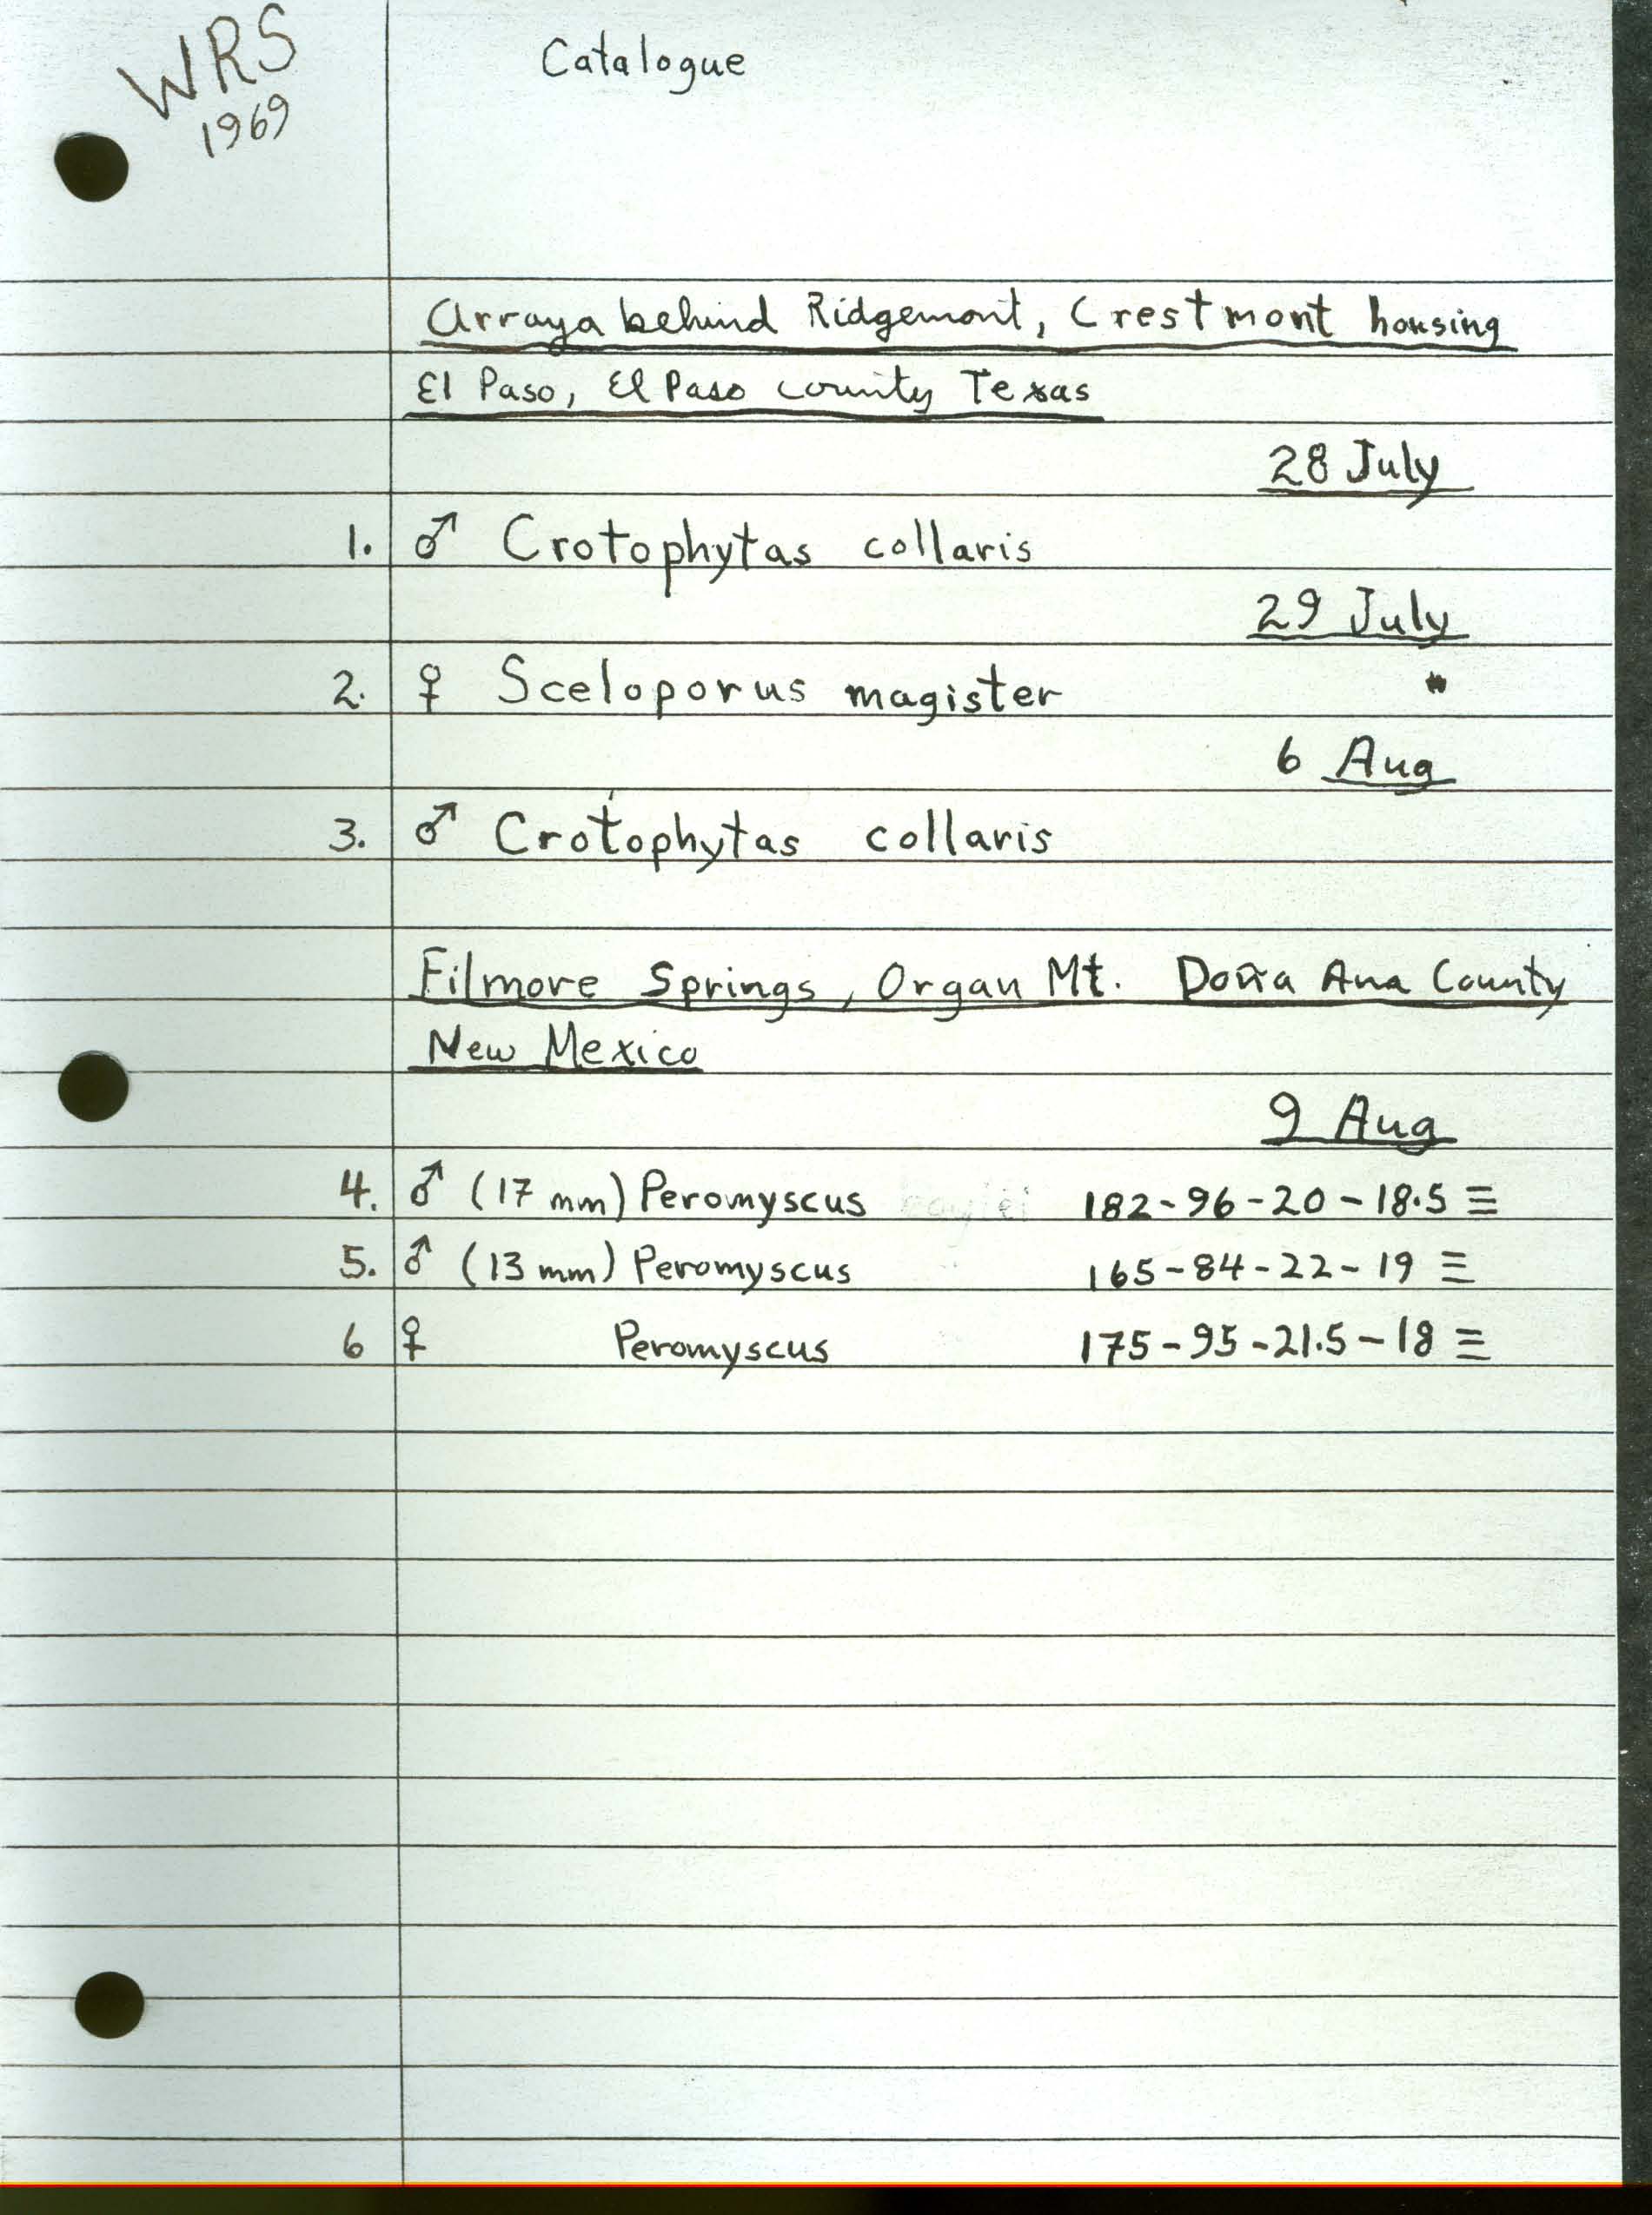 WRS
1969
Catalogue
Arroya behind Ridgemont, Crestmont housing
El Paso, El Paso County Texas
28 July
1. ♂ Crotophytas collaris
29 July
2. ♀ Sceloporus magister
6 Aug
3. ♂ Crotophytas collaris
Filmore Springs, Organ Mt. Doña Ana County
New Mexico
9 Aug
4. ♂ (17 mm) Peromyscus 182-96-20-18.5 ≡
5. ♂ (13 mm) Peromyscus 165-84-22-19 ≡
6 ♀ Peromyscus 175-95-21.5-18 ≡